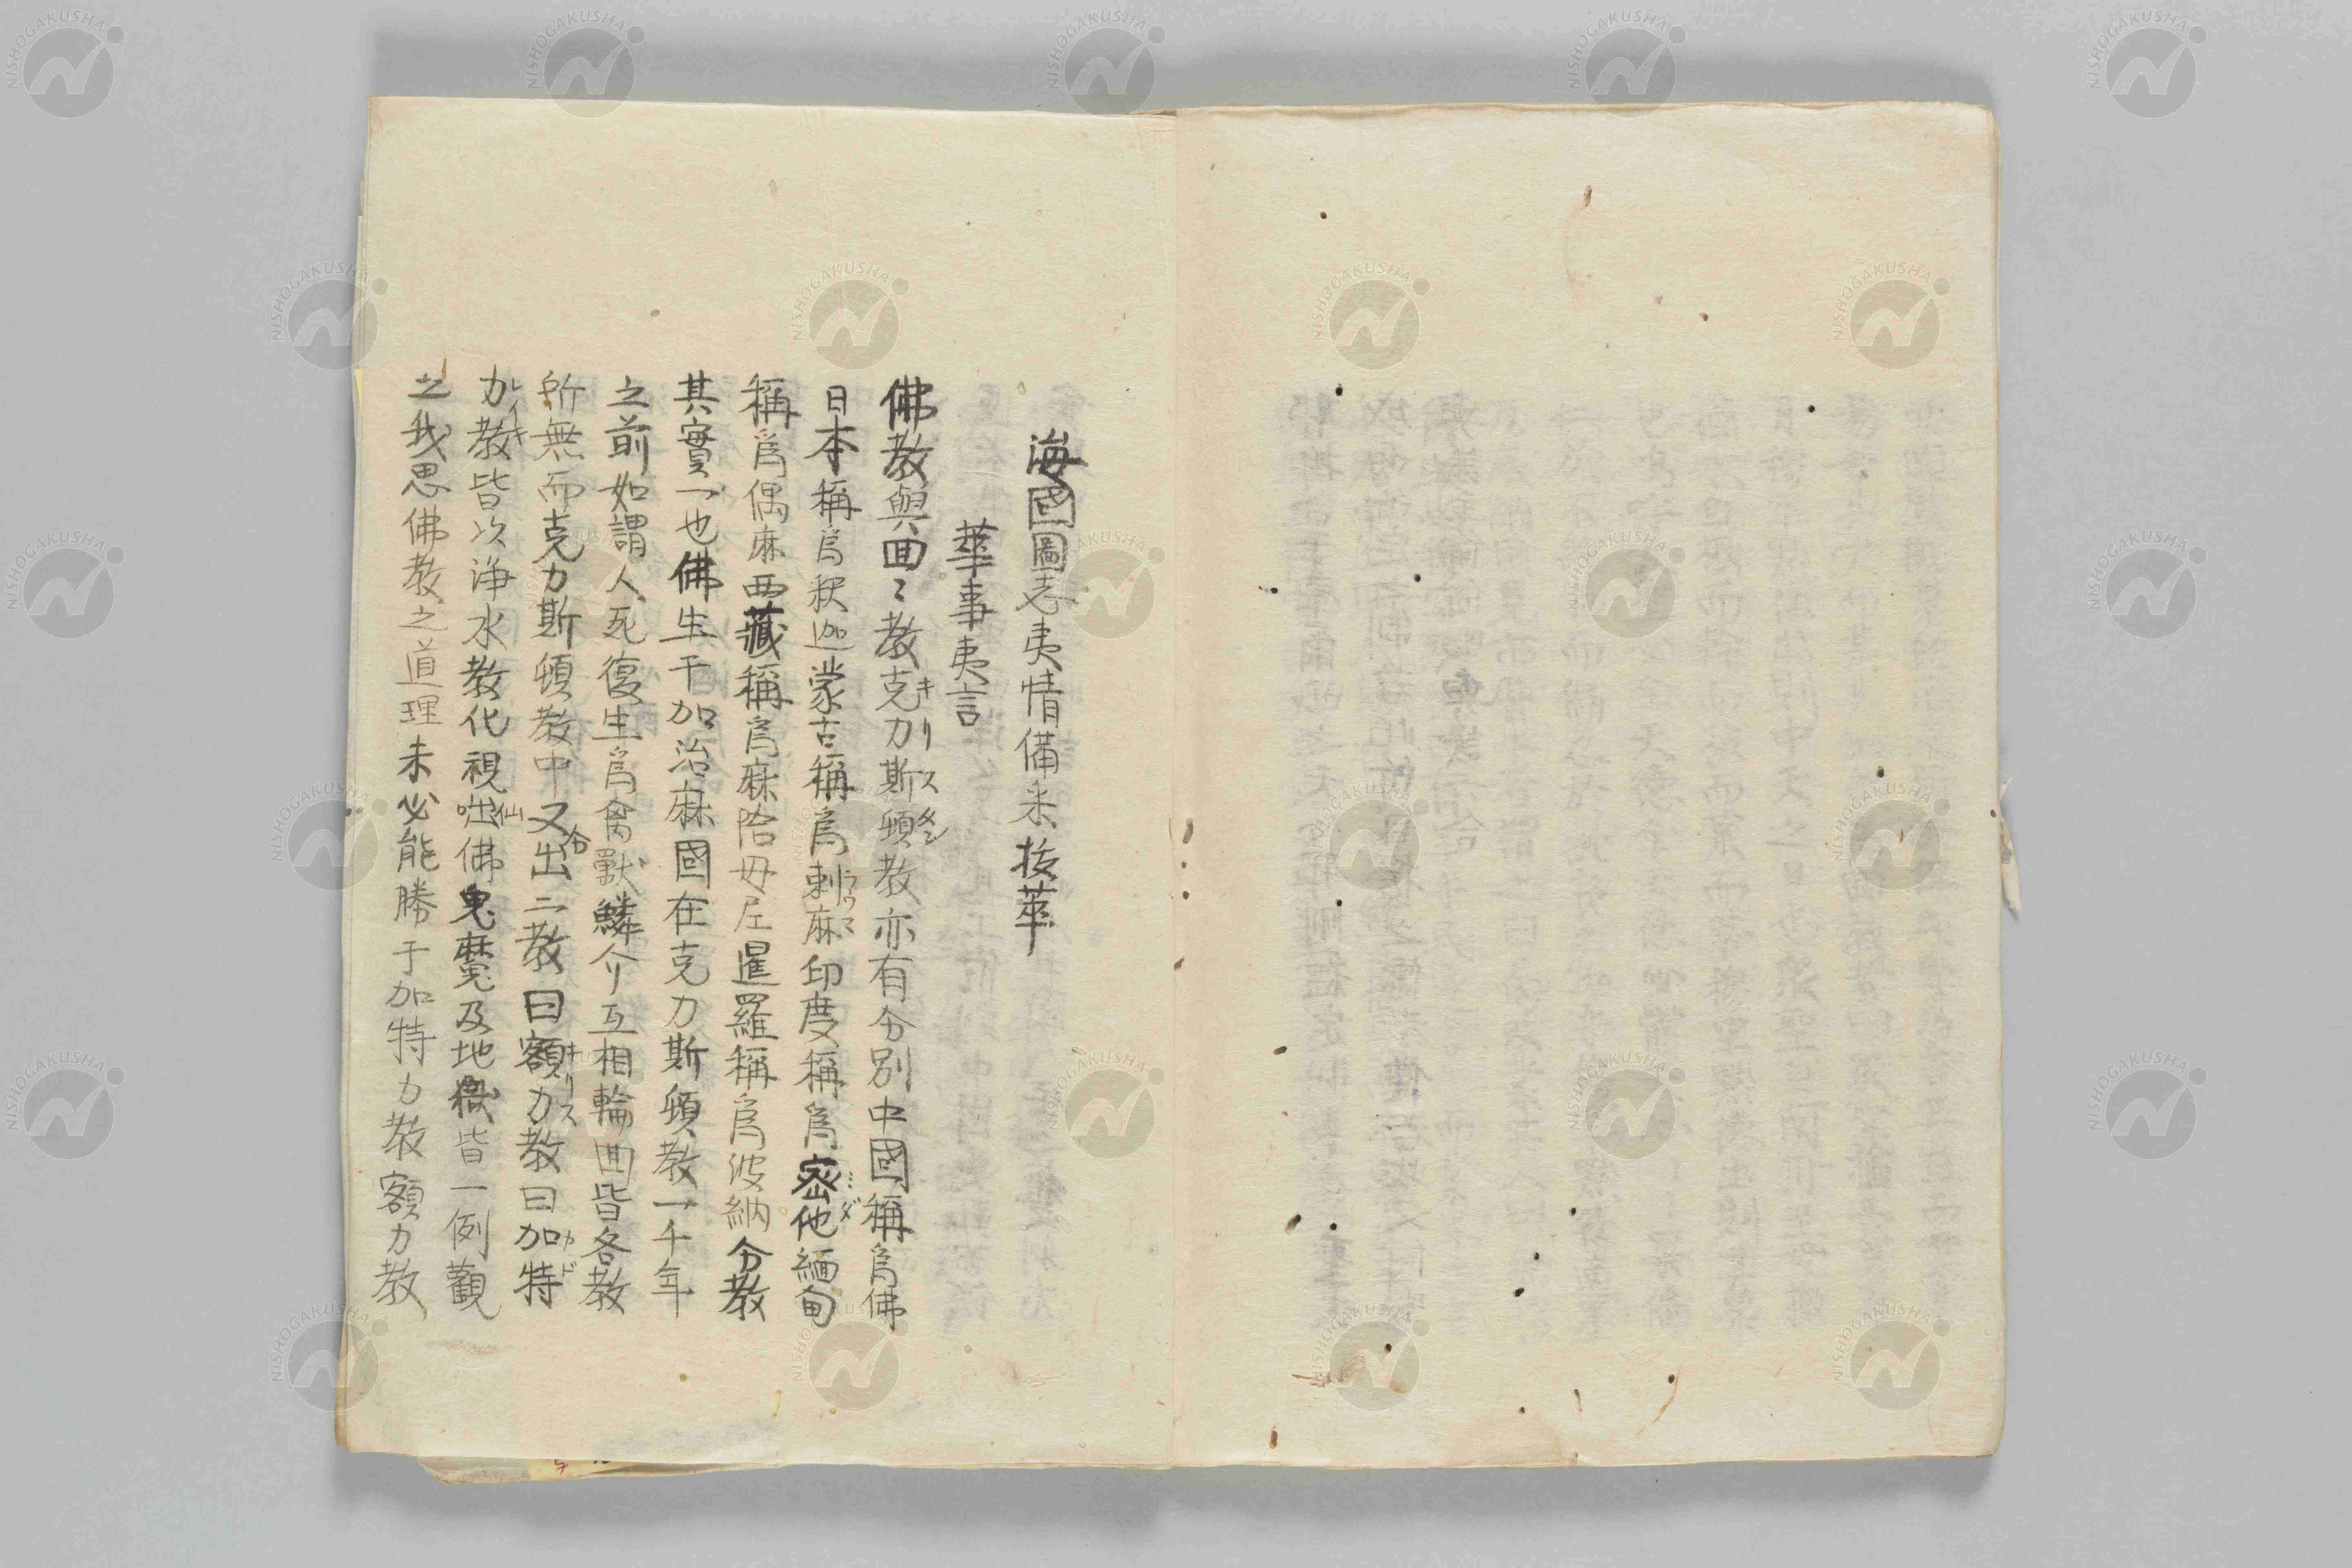 海國圖志夷情備采抜萃
華事夷言
佛教與回〻教克力斯頓教亦有分別中國稱爲佛
キリスタン
日本稱爲釈迦蒙古稱爲刺麻印度稱爲宻他緬甸
ラウマ
ミダ
稱爲偶麻西藏稱爲麻哈毋尼暹羅稱爲波納分教
其實一也佛生于加治麻國在克力斯頓教一千年
之前如謂人死復生爲禽獸鱗介互相輪回皆各教
所無而克力斯頓教中又分出二教曰額力教曰加特
キリス
カド
力教皆次浄水教化視仙佛鬼魔及地獄皆一例觀
レイキ
之我思佛教之道理未必能勝于加特力教額力教
NISHOGAKUSHA